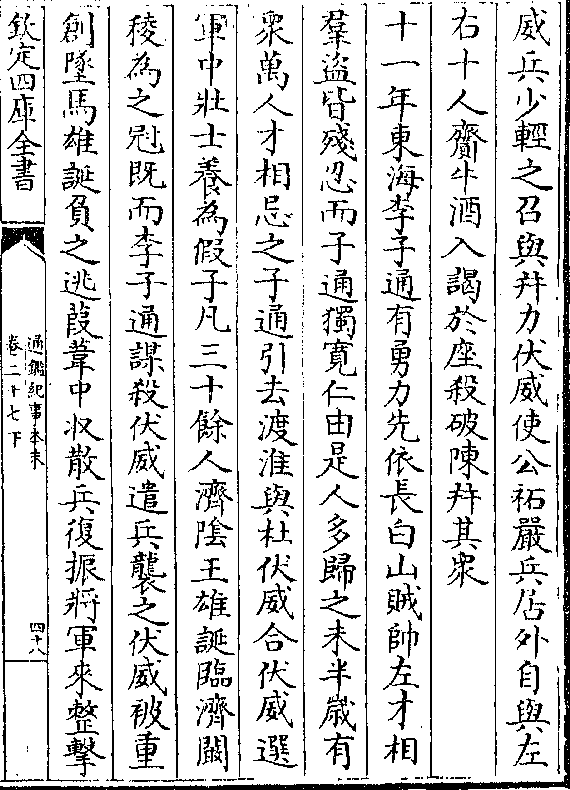 威兵少輕之召與并力伏威使公祏嚴兵居外自與左
右十人齎牛酒入謁於座殺破陳并其衆
十一年東海李子通有勇力先依長白山賊帥左才相
羣盜皆殘忍而子通獨寛仁由是人多歸之未半歲有
衆萬人才相忌之子通引去渡淮與杜伏威合伏威選
軍中壯士養為假子凡三十餘人濟隂王雄誕臨濟闞
稜為之冠既而李子通謀殺伏威遣兵襲之伏威被重
創墜馬雄誕負之逃葭葦中収散兵復振將軍來整擊
欽定四庫全書
通鑑紀事本末
卷二十七下
四十八